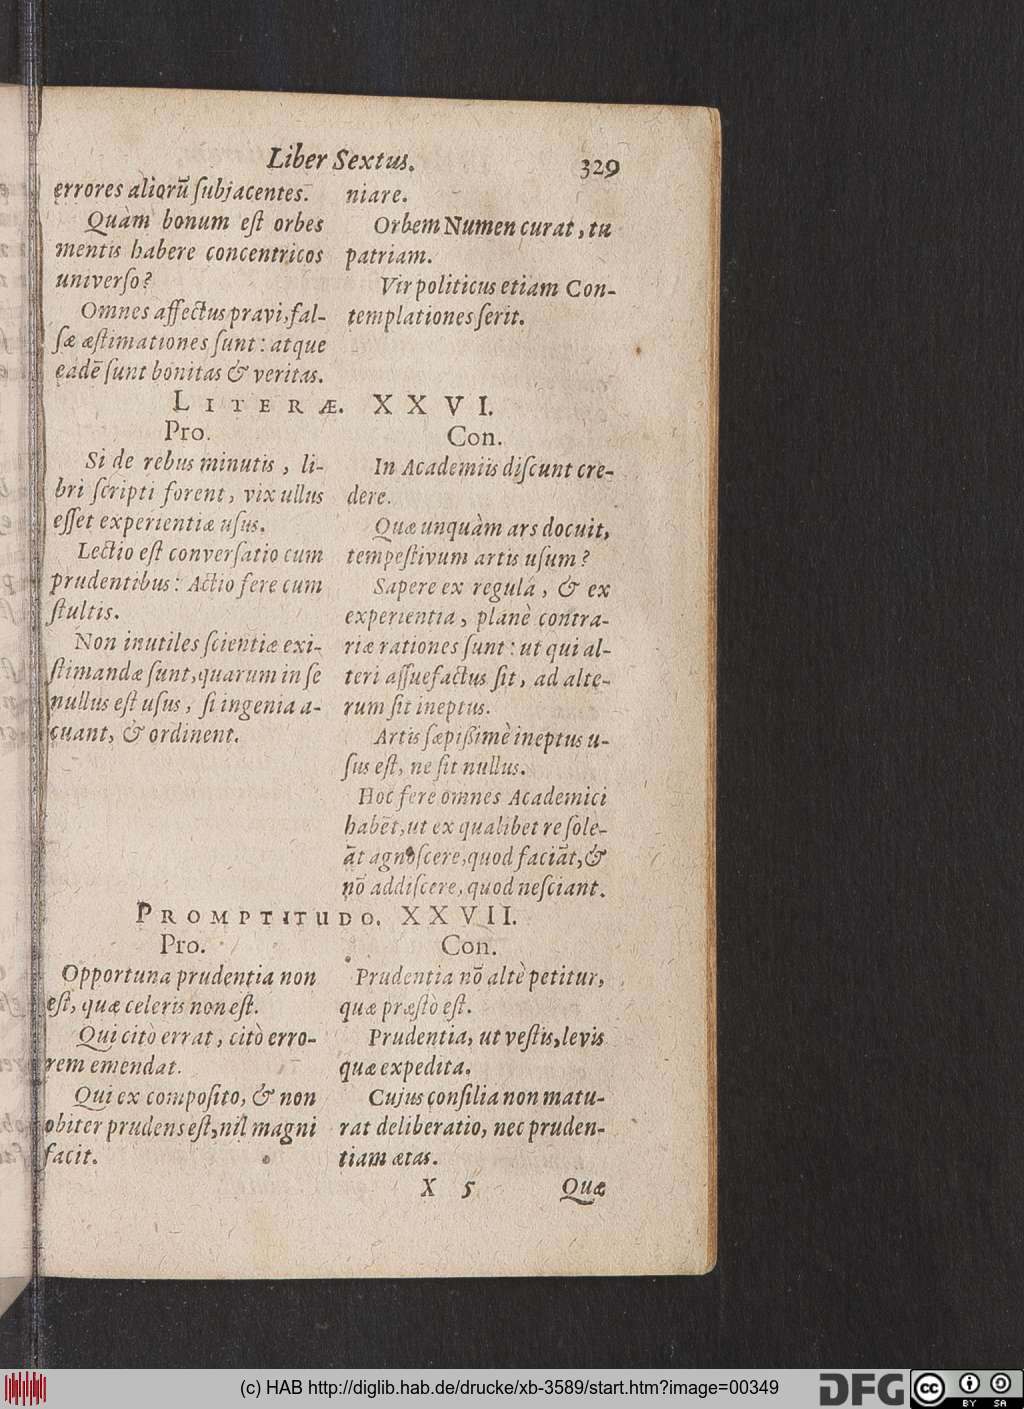 Liber Sextus. 329
errores aliorū ſubjacentes.
Quàm bonum eſt orbes
mentis habere concentricos
univerſo?
Omnes affectus pravi, fal-
ſæ æſtimationes ſunt: atque
eadē ſunt bonitas & veritas.
niare.
Orbem Numen curat, tu
patriam.
Vir politicus etiam Con-
templationes ſerit.
LITERÆ. XXVI.
Pro.
Si de rebus minutis, li-
bri ſcripti forent, vix ullus
eſſet experientiæ uſus.
Lectio eſt converſatio cum
prudentibus: Actio fere cum
ſtultis.
Non inutiles ſcientiæ exi-
ſtimandæ ſunt, quarum in ſe
nullus eſt uſus, ſi ingenia a-
cuant, & ordinent.
Con.
In Academiis diſcunt cre-
dere.
Quæ unquàm ars docuit,
tempeſtivum artis uſum?
Sapere ex regulá, & ex
experientia, planè contra-
riæ rationes ſunt: ut qui al-
teri aſſuefactus ſit, ad alte-
rum ſit ineptus.
Artis ſæpiſſimè ineptus u-
ſus eſt, ne ſit nullus.
Hoc fere omnes Academici
habēt, ut ex qualibet re ſole-
āt agnoſcere, quod faciāt, &
nō addiſcere, quod neſciant.
PROMPTITUDO. XXVII.
Pro.
Opportuna prudentia non
eſt, quæ celeris non eſt.
Qui citò errat, citò erro-
rem emendat.
Qui ex compoſito, & non
obiter prudens eſt, nil magni
facit.
Con.
Prudentia nō altè petitur,
quæ præſtò eſt.
Prudentia, ut veſtis, levis
quæ expedita.
Cujus conſilia non matu-
rat deliberatio, nec pruden-
tiam ætas.
X 5 Quæ
(c) HAB http://diglib.hab.de/drucke/xb-3589/start.htm?image=00349
DFG
cc BY SA